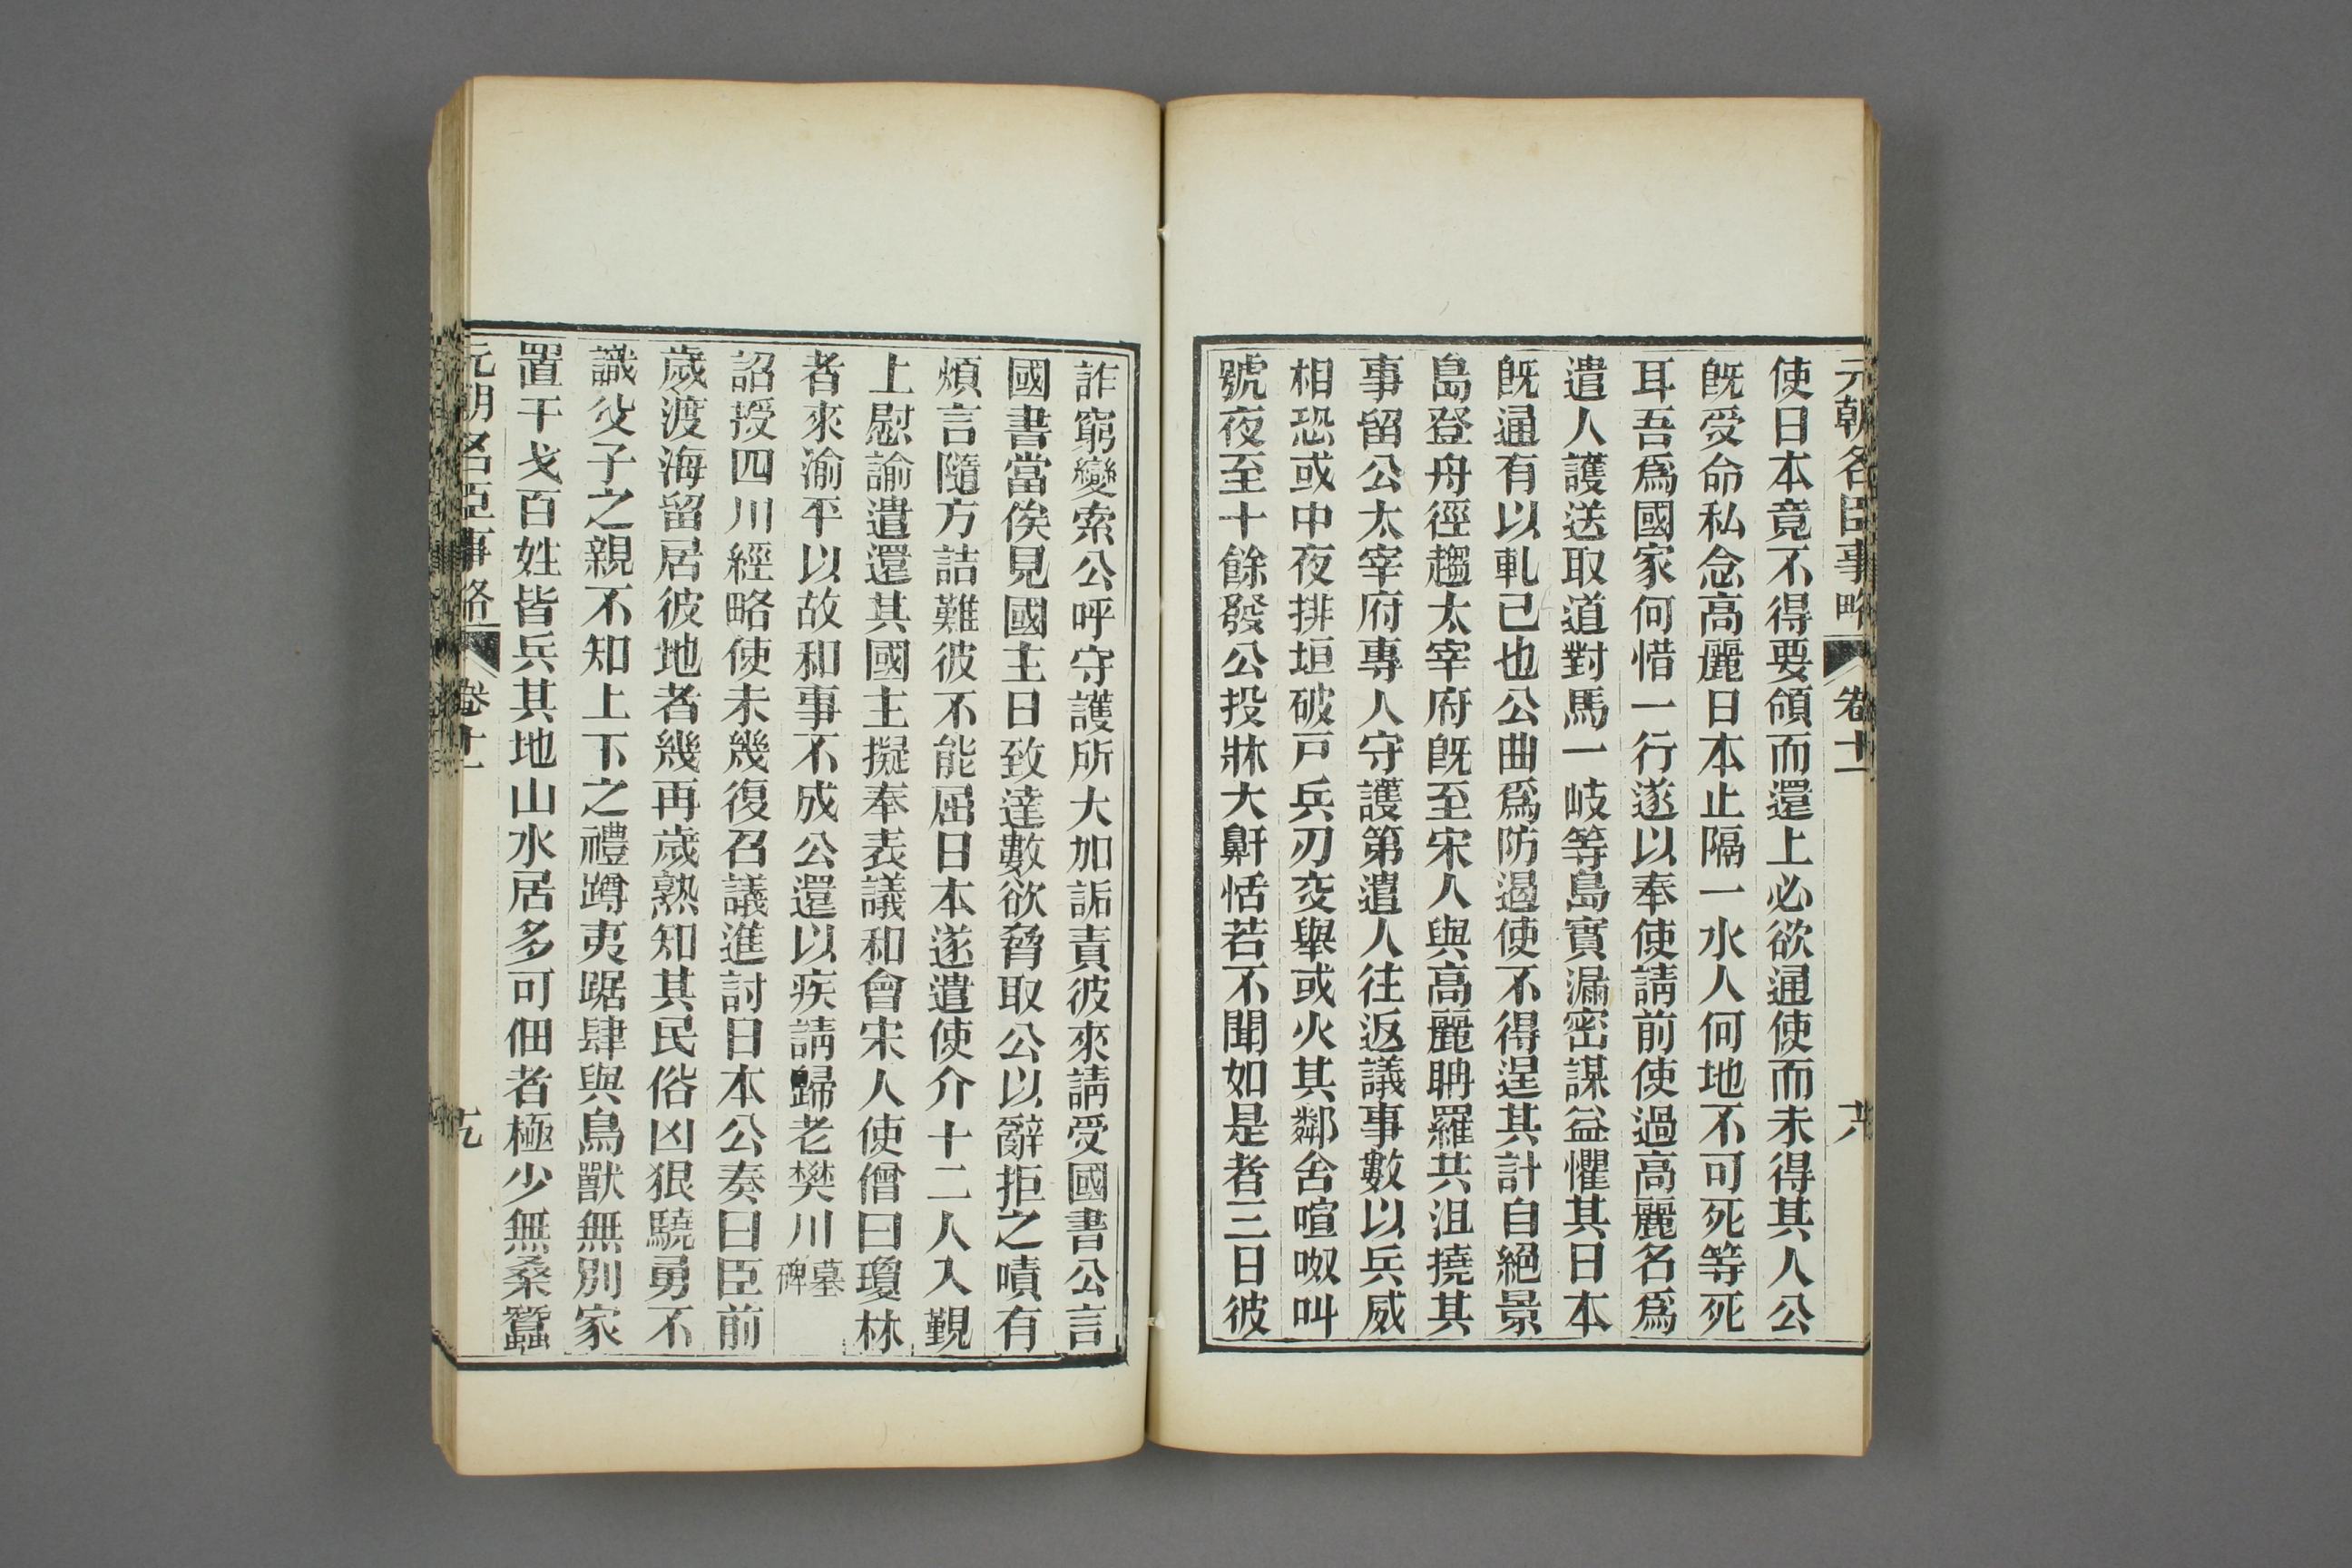 元朝名臣事略 卷十二 十八
使日本竟不得要領而還上必欲通使而未得其人公
既受命私念高麗日本止隔一水人何地不可死等死
耳吾爲國家何惜一行遂以奉使請前使過高麗名爲
遣人護送取道對馬一岐等島實漏密謀益懼其日本
既通有以軋己也公曲爲防遏使不得逞其計自絕景
島登舟徑趨太宰府既至宋人與高麗聃羅共沮撓其
事留公太宰府專人守護第遣人往返議事數以兵威
相恐或中夜排垣破戸兵刃交舉或火其鄰舍喧呶叫
號夜至十餘發公投牀大鼾恬若不聞如是者三日彼
詐窮變索公呼守護所大加詬責彼來請受國書公言
國書當俟見國主日致達數欲脅取公以辭拒之嘖有
煩言隨方詰難彼不能屈日本遂遣使介十二人入覲
上慰諭遣還其國主擬奉表議和會宋人使僧曰瓊林
者來渝平以故和事不成公還以疾請歸老樊川墓碑
詔授四川經略使未幾復召議進討日本公奏曰臣前
歲渡海留居彼地者幾再歲熟知其民俗凶狠驍勇不
識父子之親不知上下之禮蹲夷踞肆與鳥獸無別家
置干戈百姓皆兵其地山水居多可佃者極少無桑蠶
元朝名臣事略 卷十二 十九